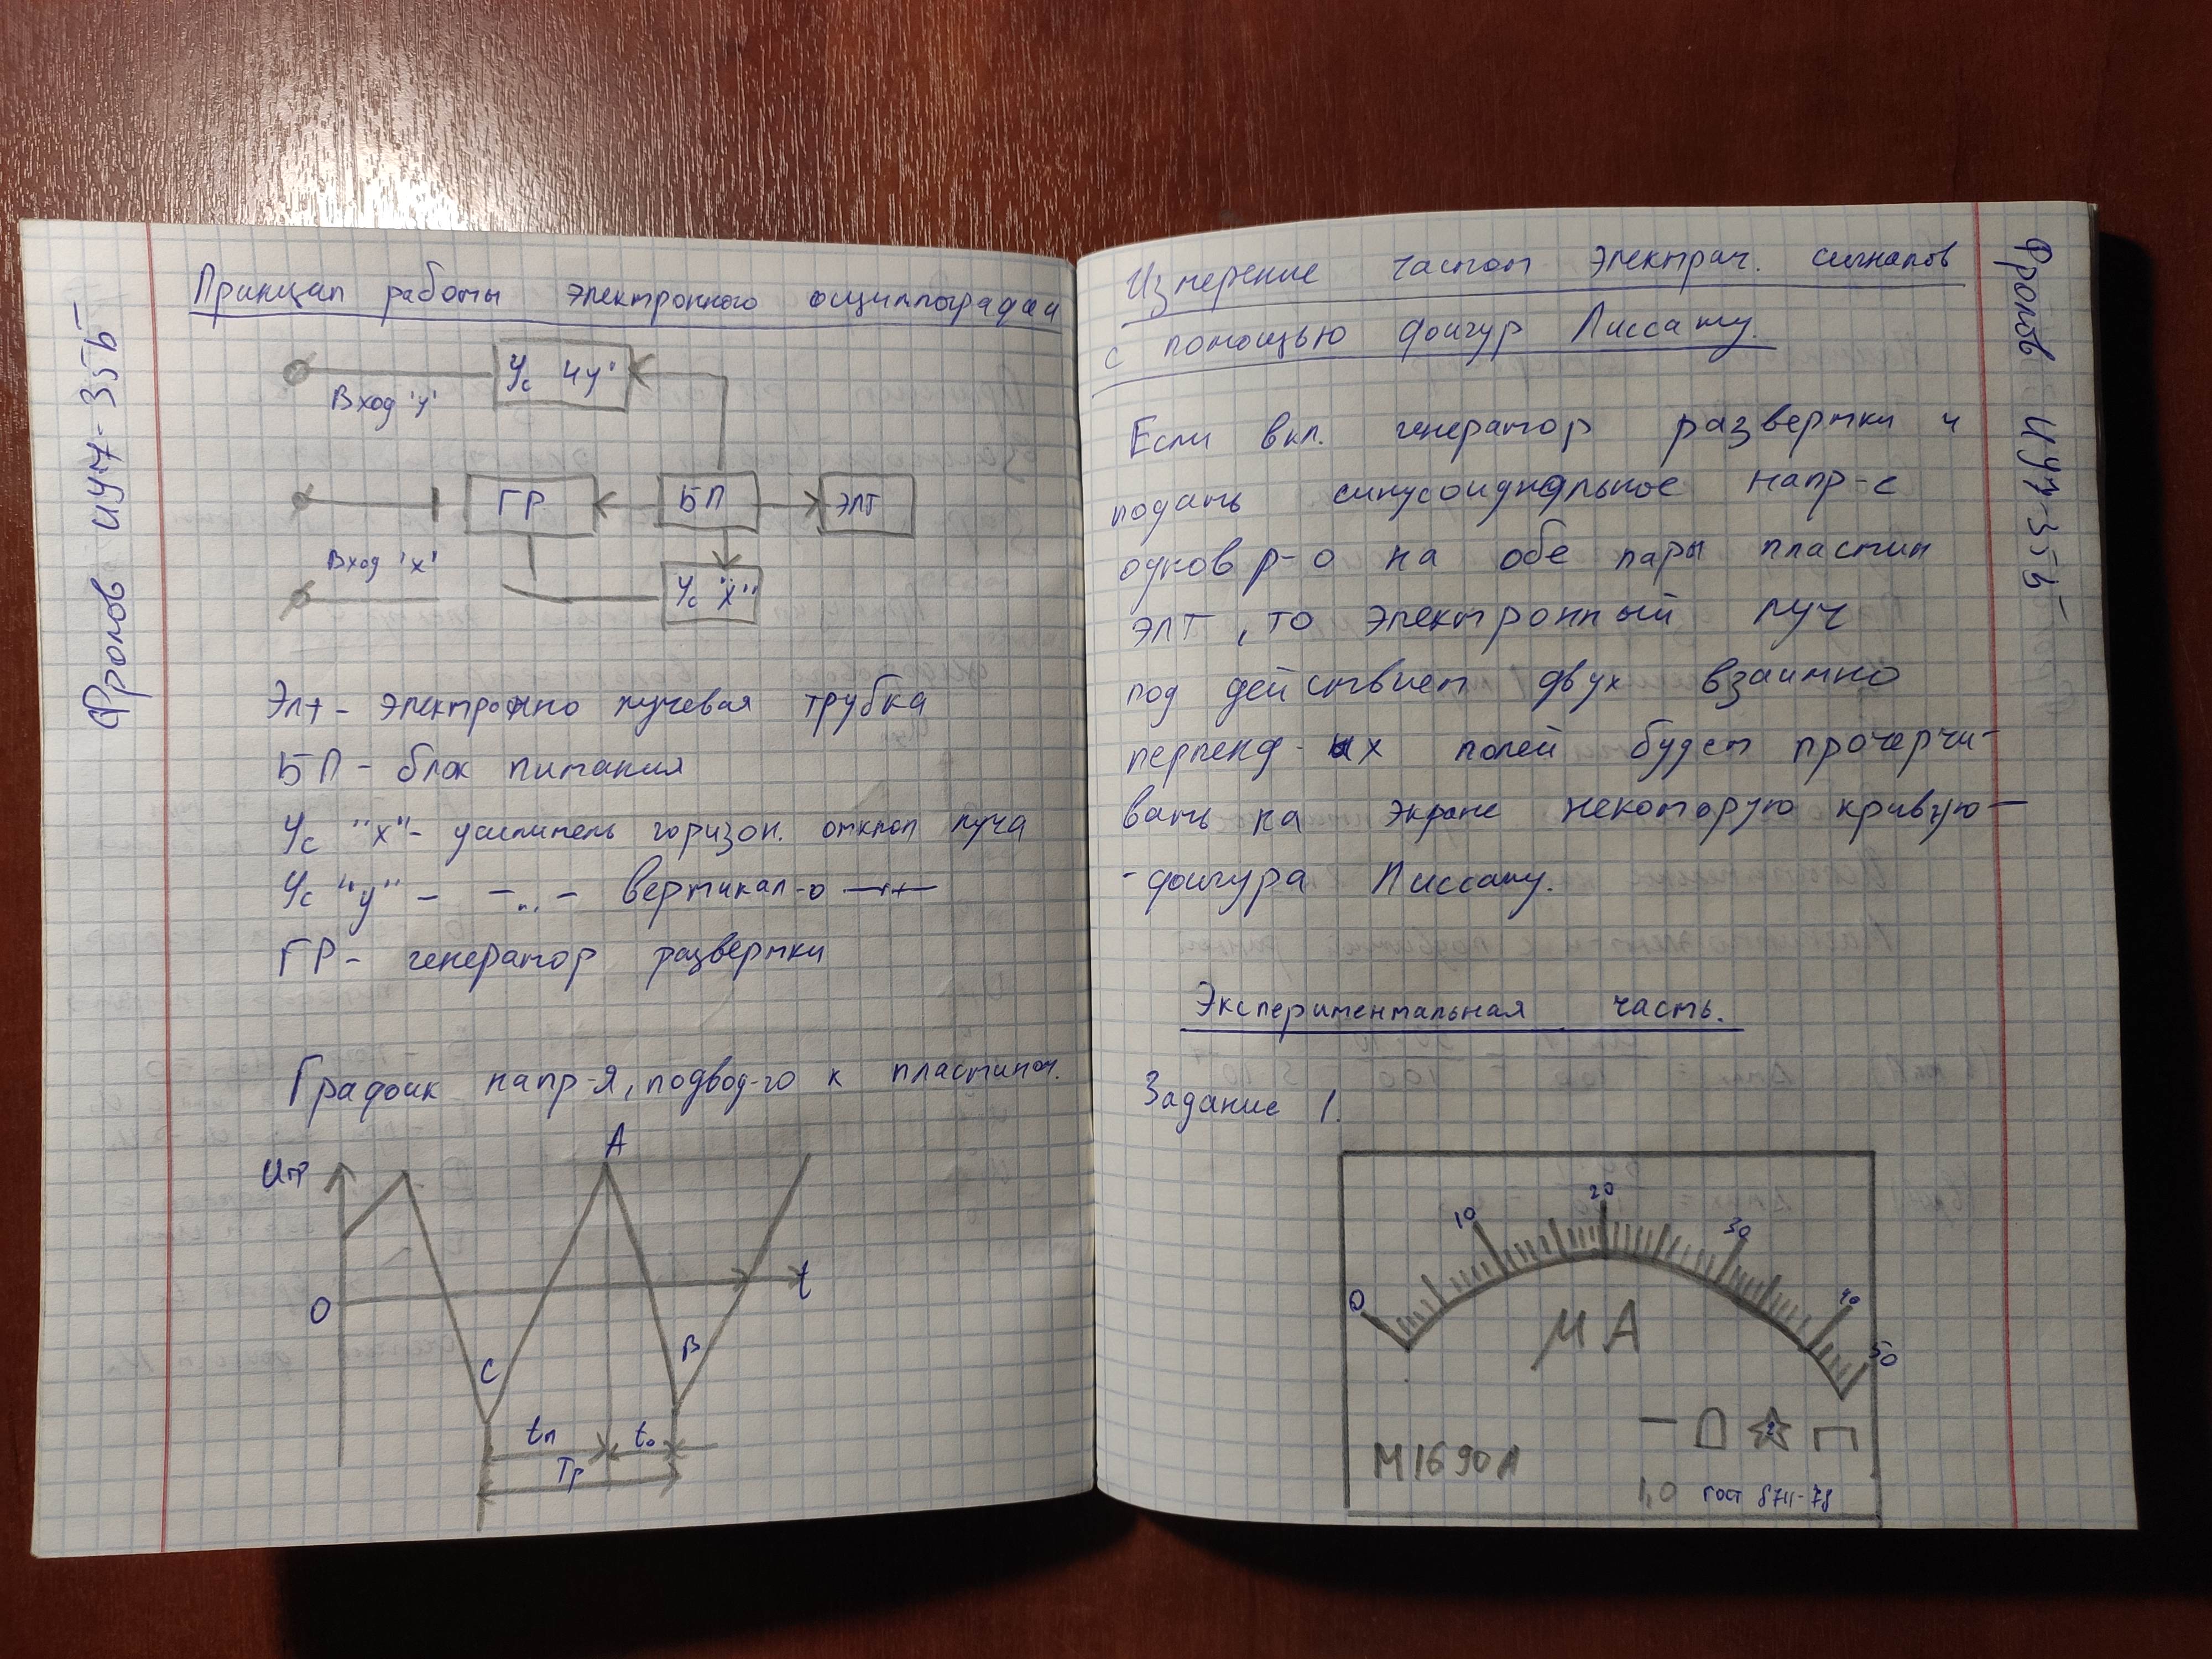 Фролов ИУ7-35Б
Принцип работы электронного осциллографа
Ус "У"
Вход "у"
ГР
БП
ЭЛТ
Вход "х"
Ус "Х"
Элт - электронно лучевая трубка
БП - блок питания
Ус "х" - усилитель горизон. откл луча
Ус "у" - -„- вертикал-о -„-
ГР - генератор развертки
График напр-я, подвод-го к пластинам.
Uпр
A
O
t
C
B
tп
to
Tp
Измерение частот электрич. сигналов
с помощью фигур Лиссажу.
Если вкл. генератор развертки и
подать синусоидальное напр-е
одновр-о на обе пары пластин
ЭЛТ, то электронный луч
под действием двух взаимно
перпенд-ых полей будет прочерчи-
вать на экране некоторую кривую-
-фигура Лиссажу.
Экспериментальная часть.
Задание 1.
0
10
20
30
40
50
μA
2
М1690А
1,0 ГОСТ 8711-78
Фролов ИУ7-35Б